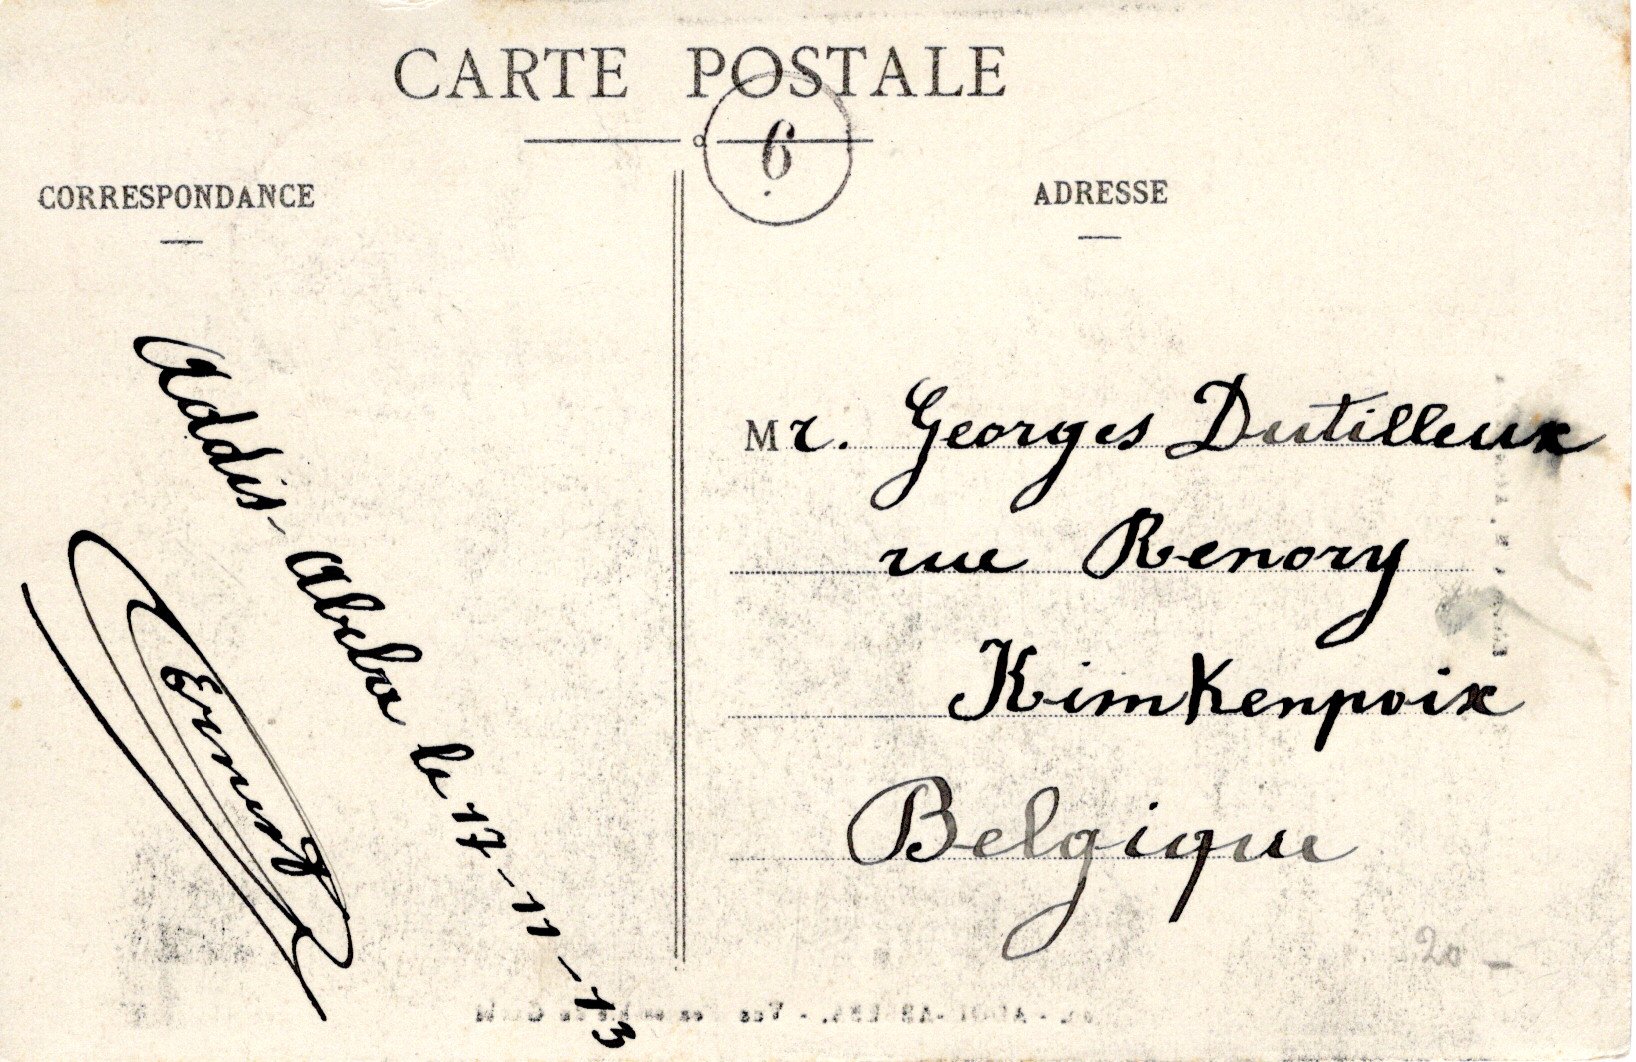 CARTE POSTALE
6
CORRESPONDANCE
ADRESSE
Addis-Abeba le 17-11-13
Mr. Georges Dutilleux
rue Renory
Kimkenpoix
Belgique
20 -